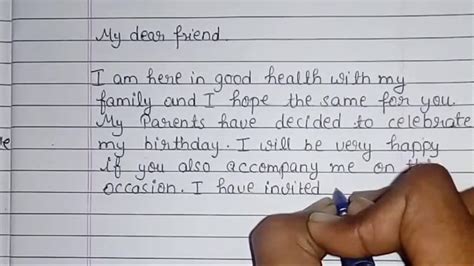 My dear friend.
I am here in good health with my
family and I hope the same for you.
My Parents have decided to celebrate
my birthday. I will be very happy
if you also accompany me on this
occasion. I have invited